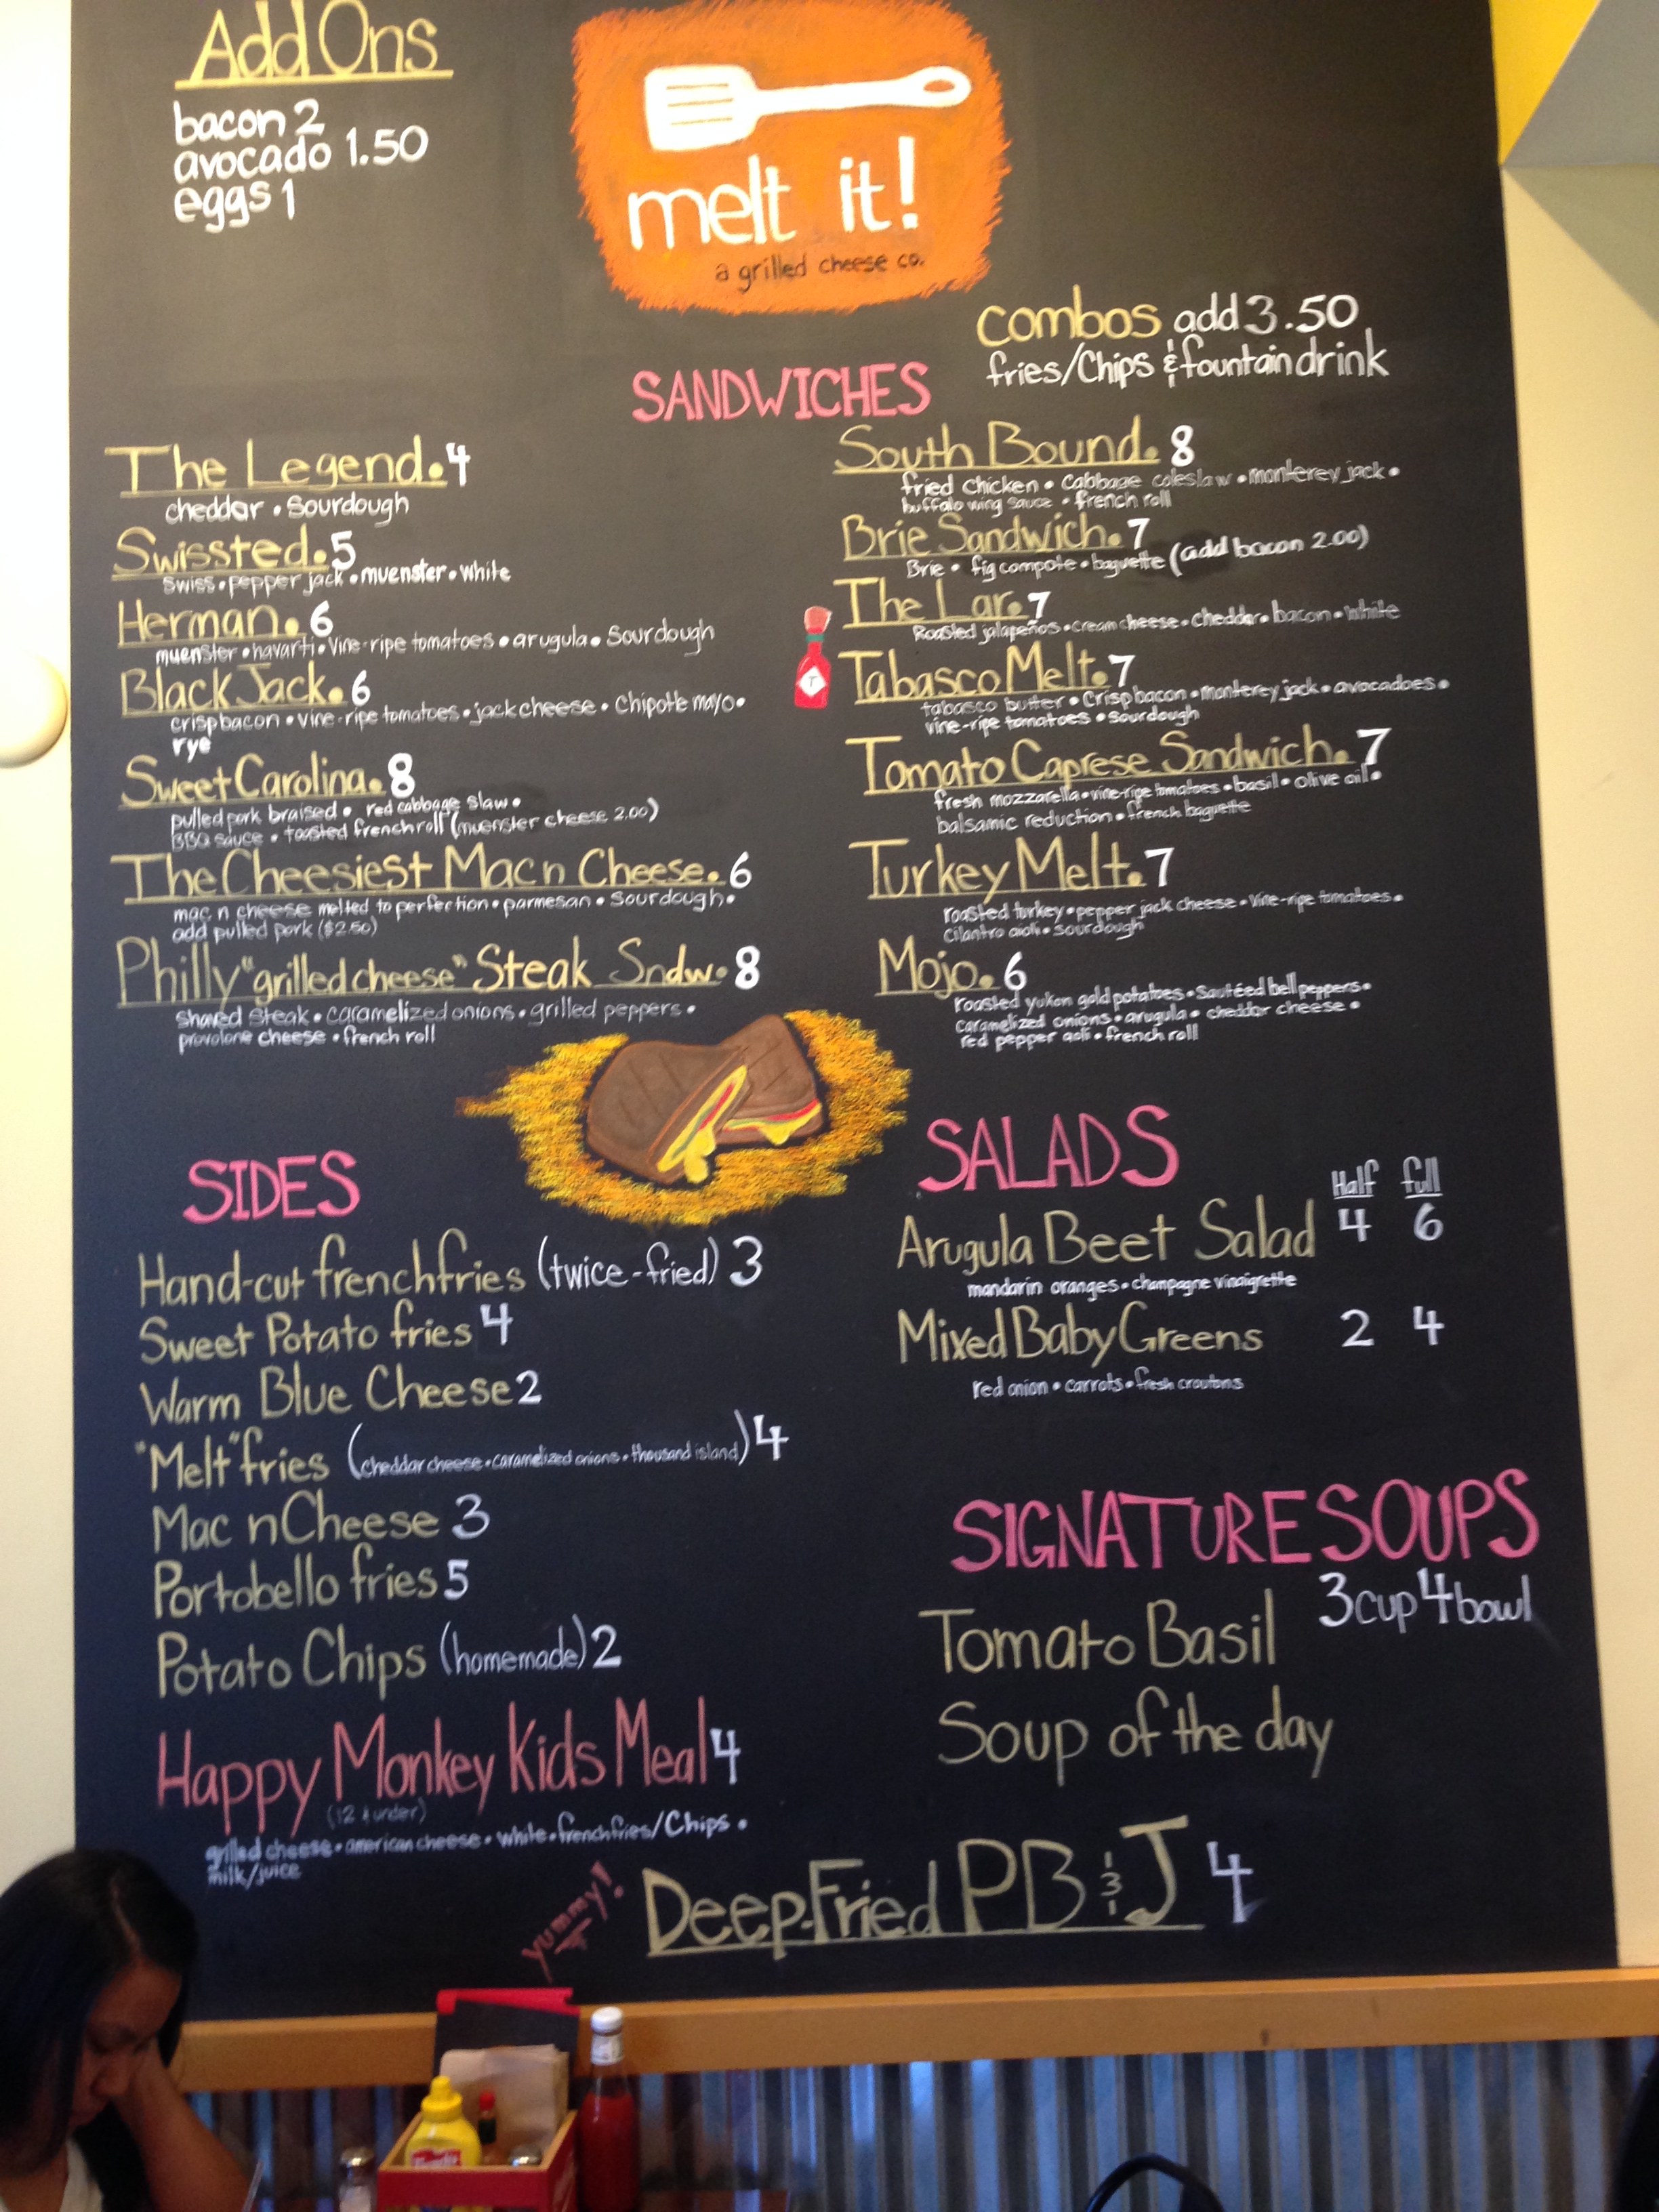 Add Ons
bacon 2
avocado 1.50
eggs 1
melt it!
a grilled cheese co.
combos add 3.50
fries/Chips & fountain drink
SANDWICHES
The Legend. 4
cheddar • Sourdough
Swissted. 5
Swiss • pepper jack • muenster • white
Herman. 6
muenster • havarti • Vine-ripe tomatoes • arugula • Sourdough
Black Jack. 6
crisp bacon • vine-ripe tomatoes • jack cheese • Chipotle mayo •
rye
Sweet Carolina. 8
pulled pork braised • red cabbage slaw •
BBQ sauce • toasted french roll (muenster cheese 2.00)
The Cheesiest Mac n Cheese. 6
mac n cheese melted to perfection • parmesan • sourdough •
add pulled pork ($2.50)
Philly "grilled cheese" Steak Sndw. 8
Shaved Steak • caramelized onions • grilled peppers •
provolone cheese • french roll
South Bound. 8
fried chicken • cabbage coleslaw • monterey jack •
buffalo wing sauce • french roll
Brie Sandwich. 7
Brie • fig compote • baguette (add bacon 2.00)
The Lar. 7
Roasted jalapeños • cream cheese • cheddar • bacon • white
T
Tabasco Melt. 7
tabasco butter • Crisp bacon • monterey jack • avocadoes •
vine-ripe tomatoes • sourdough
Tomato Caprese Sandwich. 7
fresh mozzarella • vine-ripe tomatoes • basil • olive oil •
balsamic reduction • french baguette
Turkey Melt. 7
roasted turkey • pepper jack cheese • Vine-ripe tomatoes •
Cilantro aioli • sourdough
Mojo. 6
roasted yukon gold potatoes • Sautéed bell peppers •
caramelized onions • arugula • cheddar cheese •
red pepper aoli • french roll
SIDES
Hand-cut french fries (twice-fried) 3
Sweet Potato fries 4
Warm Blue Cheese 2
"Melt" fries (cheddar cheese • caramelized onions • thousand island) 4
Mac n Cheese 3
Portobello fries 5
Potato Chips (homemade) 2
Happy Monkey Kids Meal 4
(12 & under)
grilled cheese • american cheese • white • french fries/Chips •
milk/juice
SALADS
Half full
Arugula Beet Salad 4 6
mandarin oranges • champagne vinaigrette
Mixed Baby Greens 2 4
red onion • carrots • fresh croutons
SIGNATURE SOUPS
3 cup 4 bowl
Tomato Basil
Soup of the day
yummy!
Deep-Fried PB & J 4